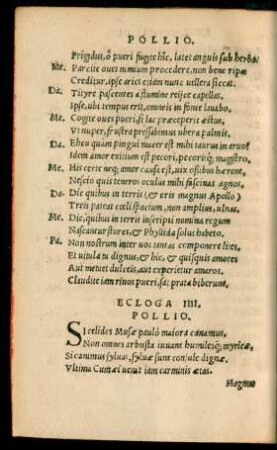 POLLIO.
Frigidus, ô pueri fugite hîc, latet anguis sub herba.
Me. Parcite oues nimium procedere, non bene ripæ
Creditur, ipse aries etiam nunc uellera siccat.
Da. Tityre pascentes à flumine reijce capellas,
Ipse, ubi tempus erit, omneis in fonte lauabo.
Me. Cogite oues pueri, si lac præceperit æstus,
Vt nuper, frustra pressabimus ubera palmis.
Da. Eheu quàm pingui macer est mihi taurus in aruo?
Idem amor exitium est pecori, pecorisq; magistro.
Me. His certe neq; amor causa est, uix oßibus hærent,
Nescio quis teneros oculus mihi fascinat agnos.
Da. Dic quibus in terris (& eris magnus Apollo)
Treis pateat cœli spacium, non amplius, ulnas.
Me. Dic, quibus in terris inscripti nomina regum
Nascantur flores, & Phyllida solus habeto.
Pa. Non nostrum inter uos tantas componere lites,
Et uitula tu dignus, & hic, & quisquis amores
Aut metuet dulceis, aut experietur amaros.
Claudite iam riuos pueri, sat prata biberunt.
ECLOGA IIII.
POLLIO.
SIcelides Musæ paulò maiora canamus,
Non omnes arbusta iuuant humilesq; myricæ,
Si canimus syluas, syluæ sunt consule dignæ.
Vltima Cumæi uenit iam carminis ætas.
Magnus